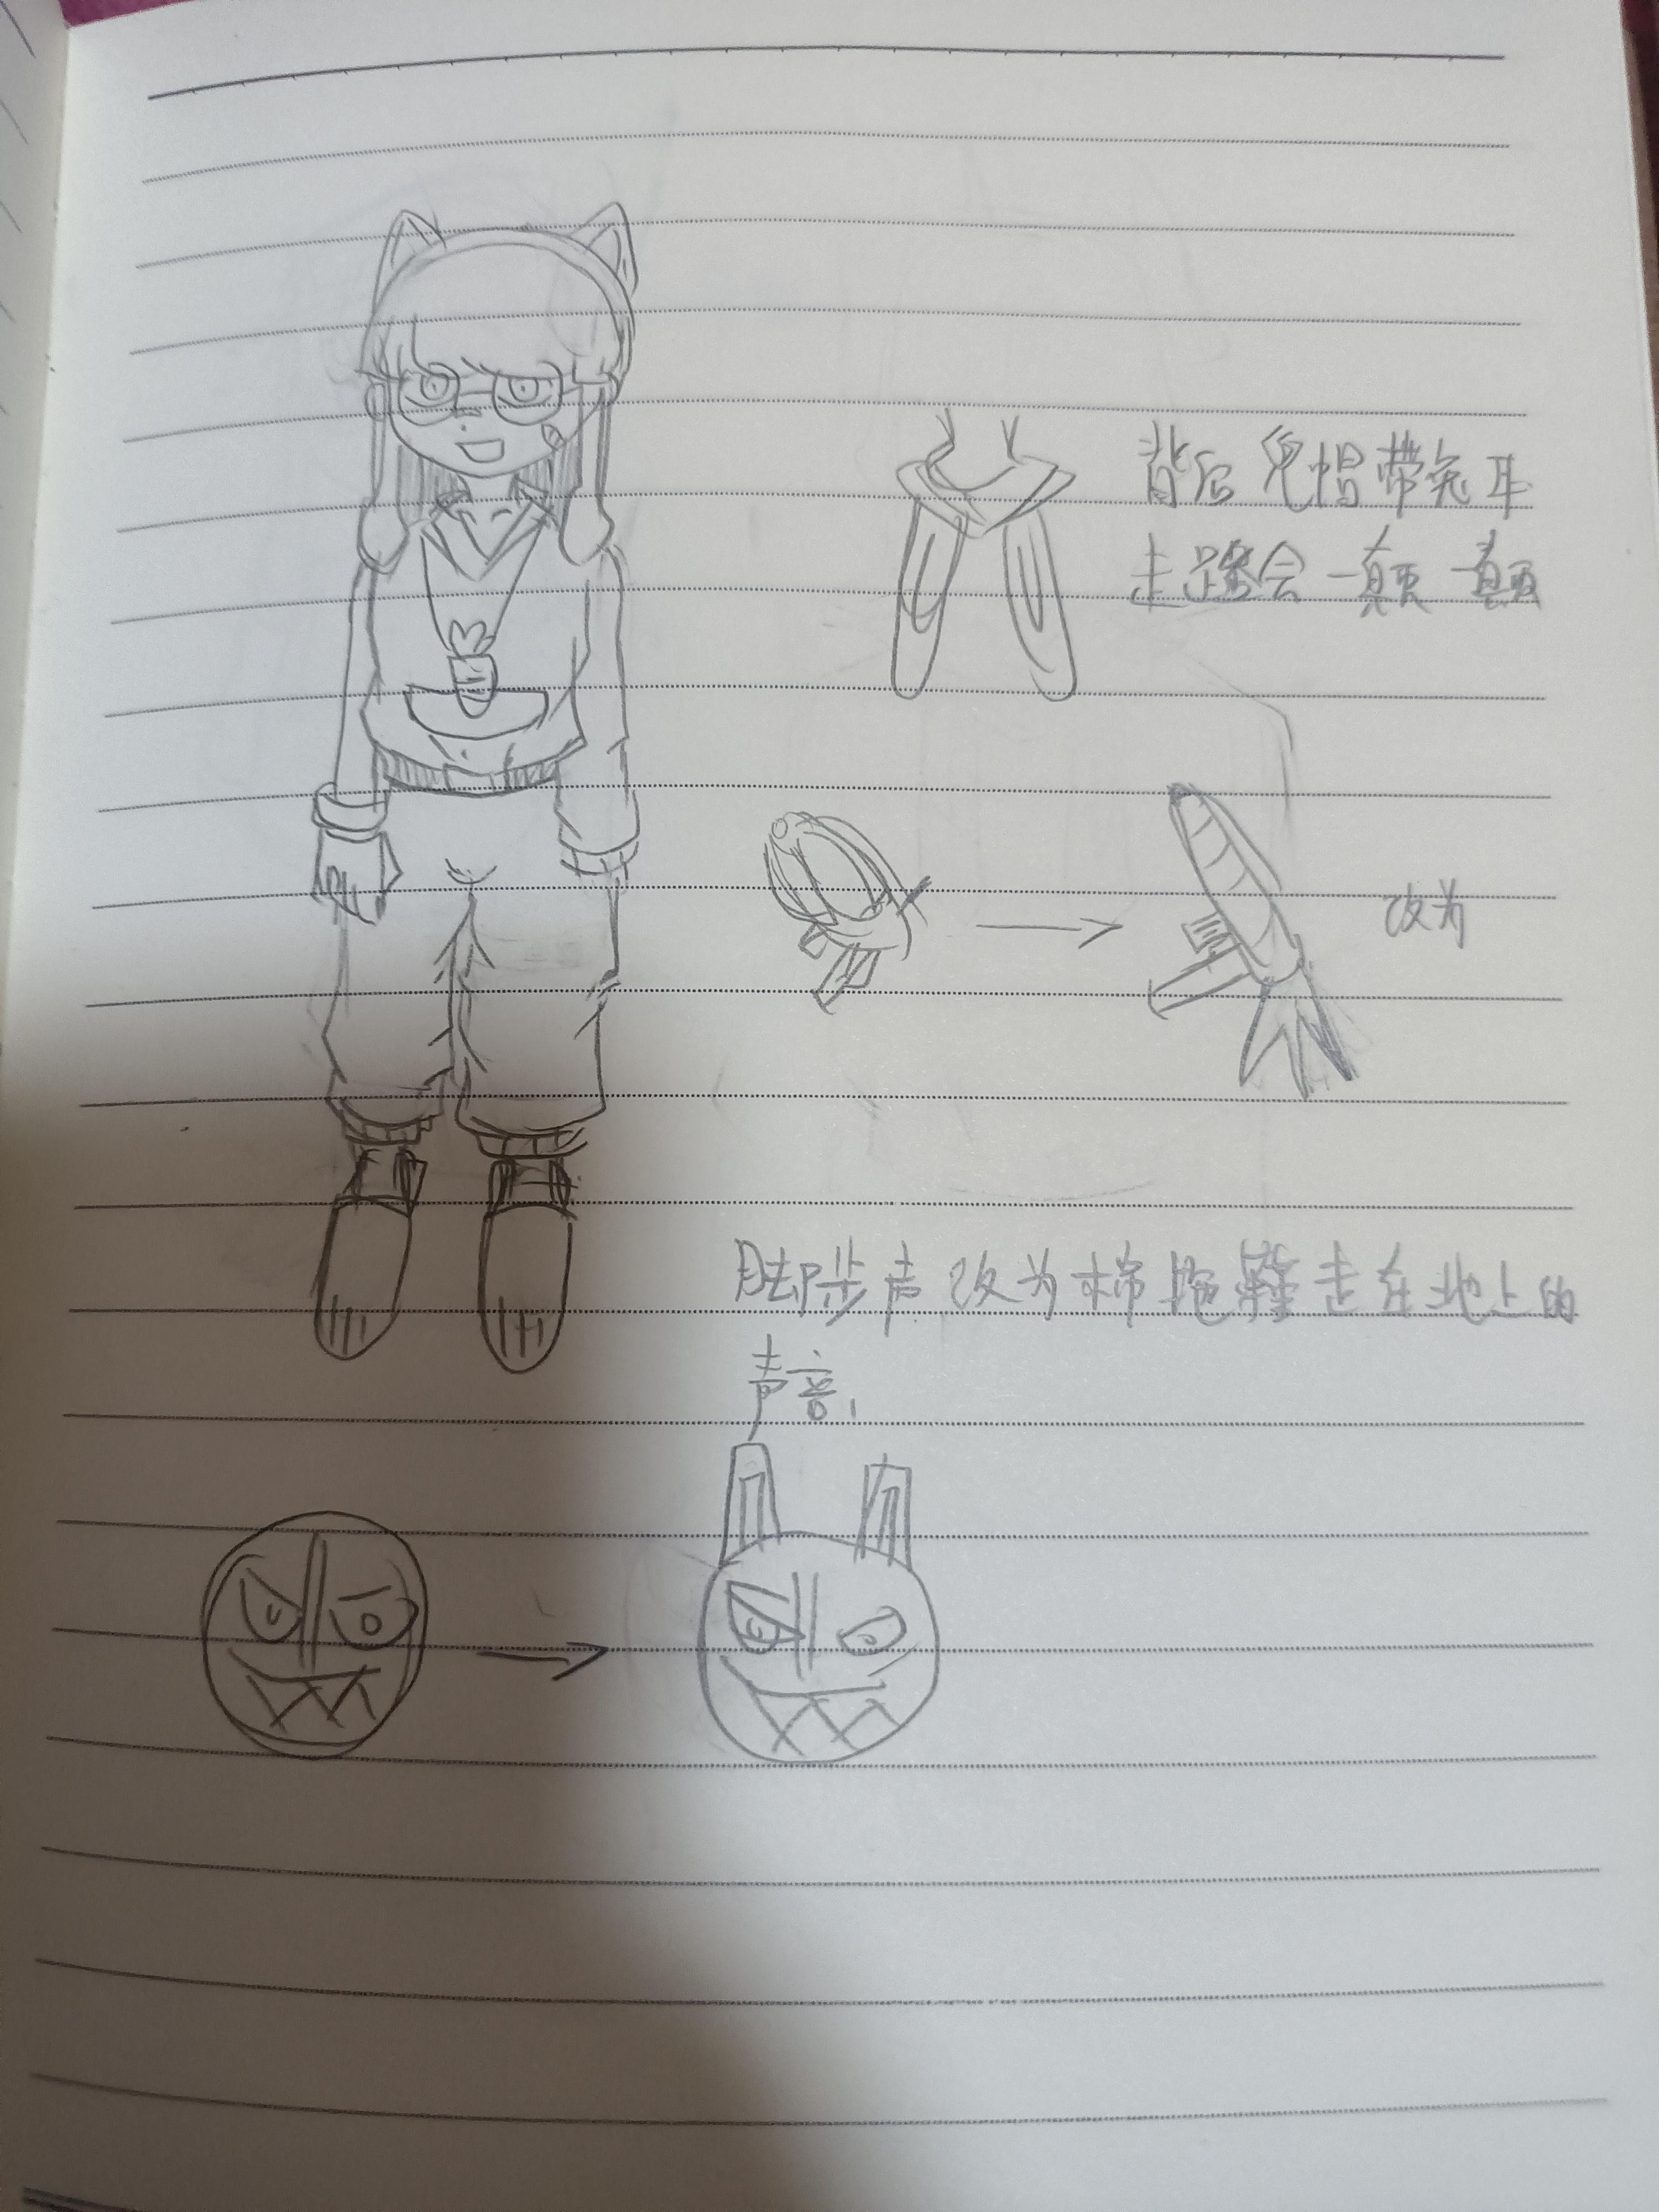 背后兜帽带兔耳
走路会一颠一颠
改为
脚步声改为棉拖鞋走在地上的
声音,